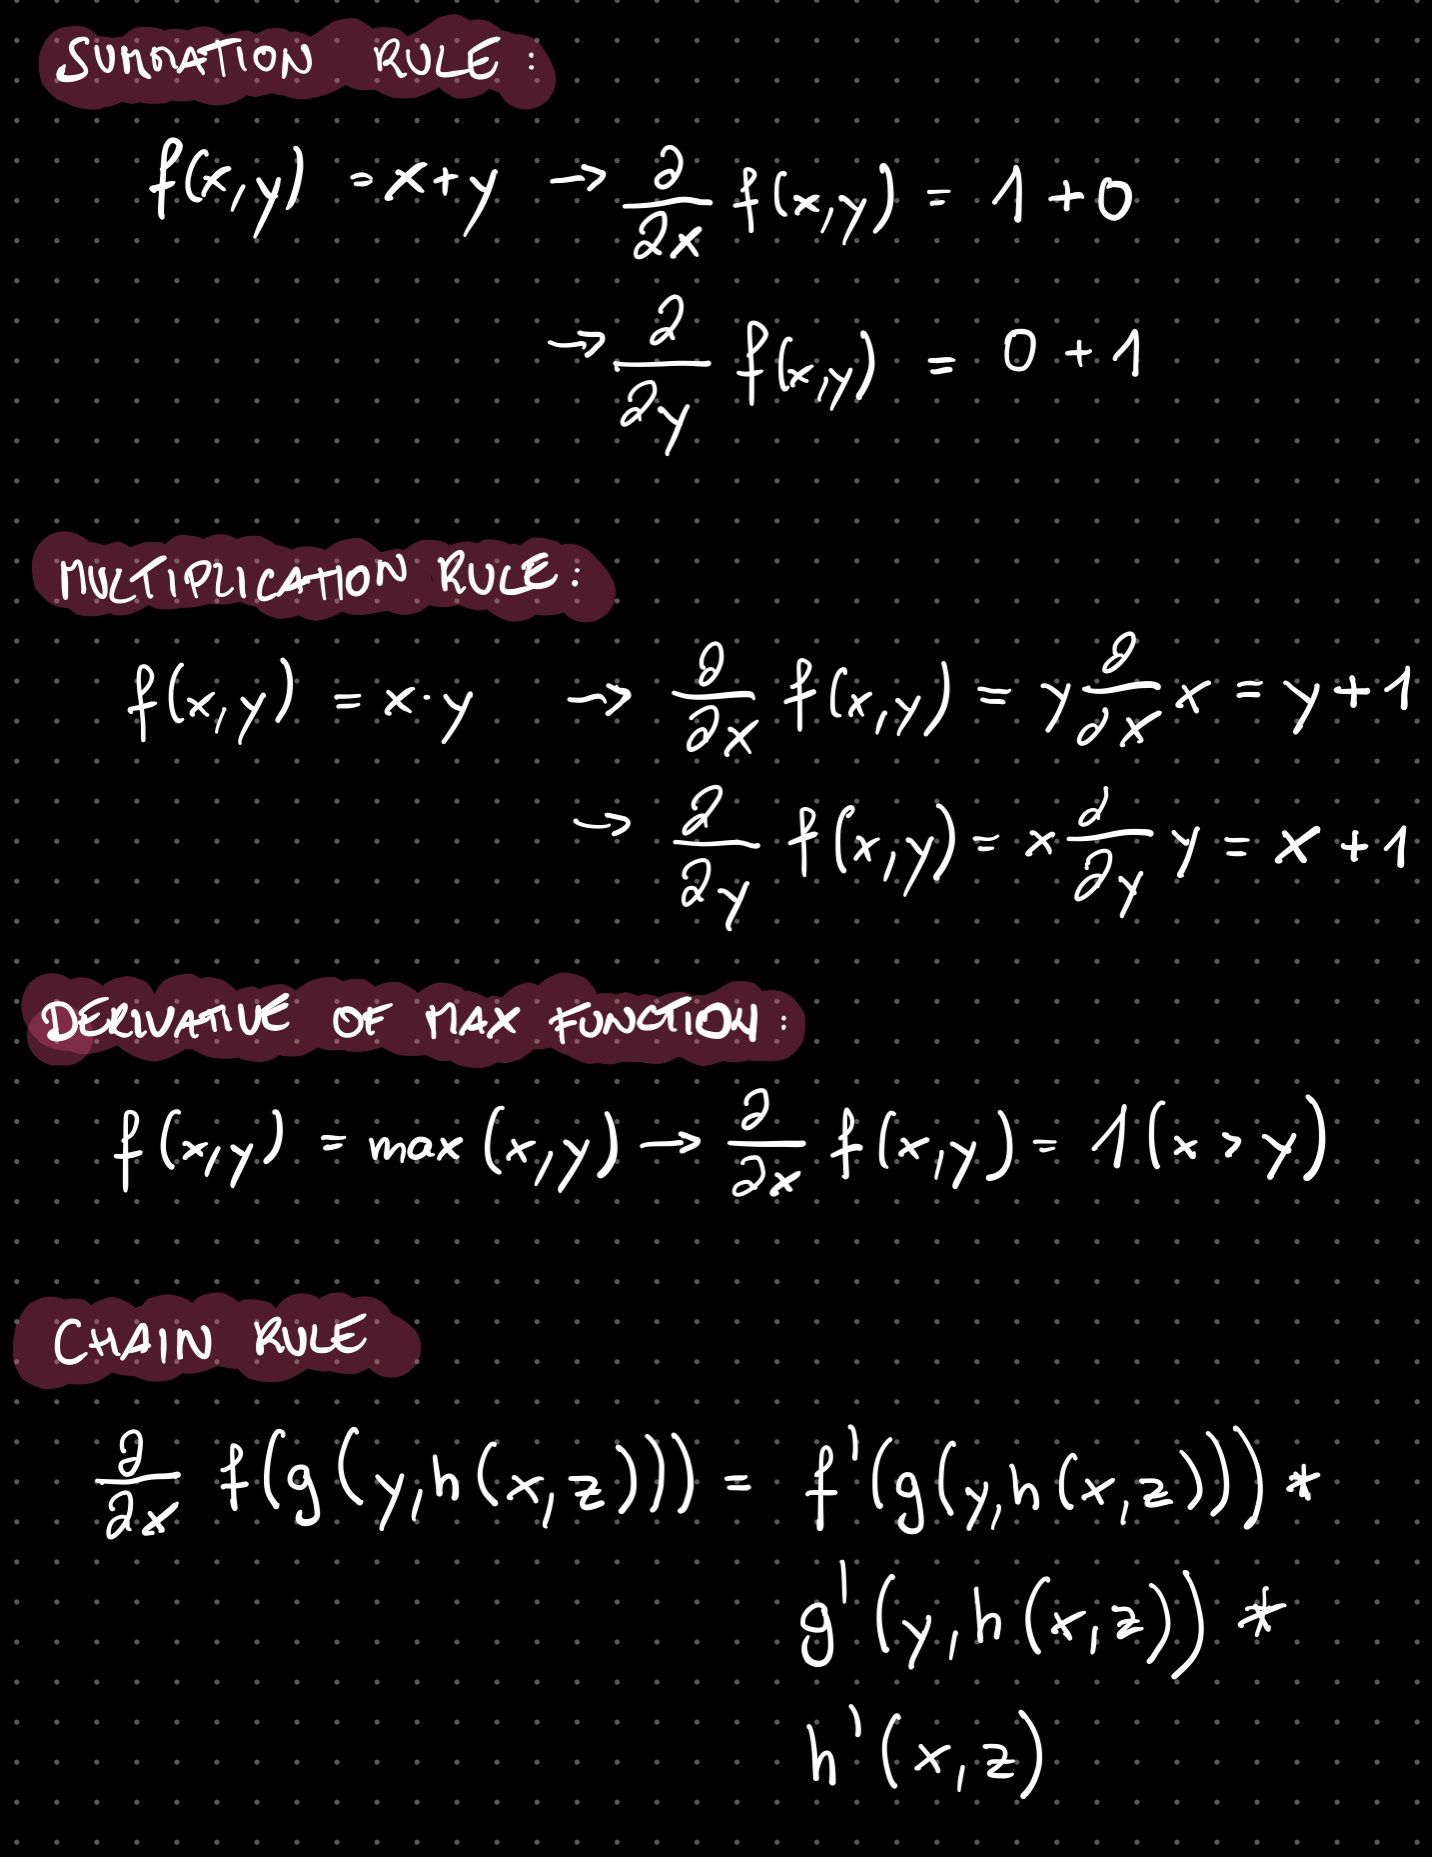 SUMMATION RULE:
f(x,y) = x+y → ∂/∂x f(x,y) = 1 + 0
→ ∂/∂y f(x,y) = 0 + 1
MULTIPLICATION RULE:
f(x,y) = x·y → ∂/∂x f(x,y) = y ∂/∂x x = y + 1
→ ∂/∂y f(x,y) = x ∂/∂y y = x + 1
DERIVATIVE OF MAX FUNCTION:
f(x,y) = max(x,y) → ∂/∂x f(x,y) = 1(x > y)
CHAIN RULE
∂/∂x f(g(y,h(x,z))) = f'(g(y,h(x,z))) *
g'(y,h(x,z)) *
h'(x,z)